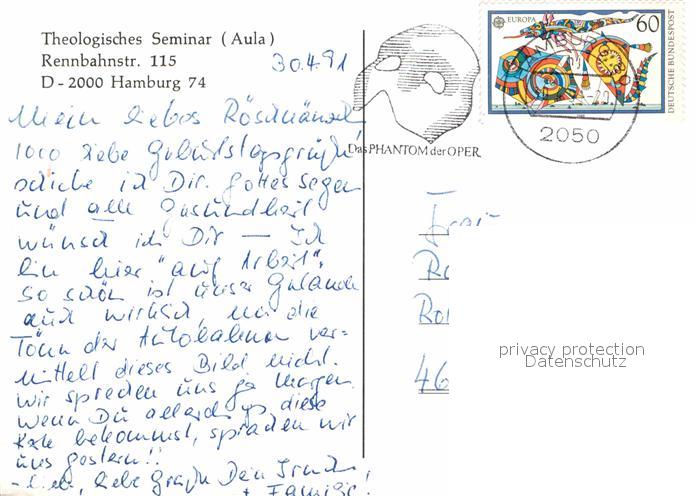 Theologisches Seminar (Aula)
Rennbahnstr. 115
D-2000 Hamburg 74
30.4.91
EUROPA
60
DEUTSCHE BUNDESPOST
Das PHANTOM der OPER
2050
Mein liebes
1000 liebe Geburtstagsgrüße
schicke ich Dir. Gottes Segen
und alle Gesundheit
wünsch ich Dir — Ich
bin hier "auf Arbeit".
So schön ist unser Gelände
auch wirklich, nur die
Töne der Autobahnen ver-
mittelt dieses Bild nicht.
Wir sprechen uns ja morgen.
Wenn Du allerdings diese
Karte bekommst, sprachen wir
uns gestern!!
liebe Grüße Dein
+ Familie!
Frau
46
privacy protection
Datenschutz